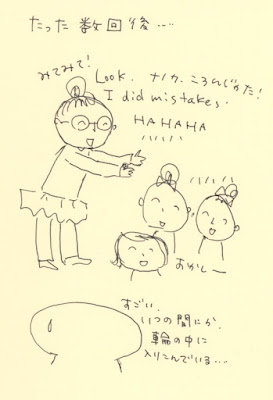 たった数回後…
みてみて!
Look. ナノカ. ころんじゃった!
I did mistakes.
HAHAHA
おかしー
すごい.
いつの間にか.
輪の中に
入りこんでいる…